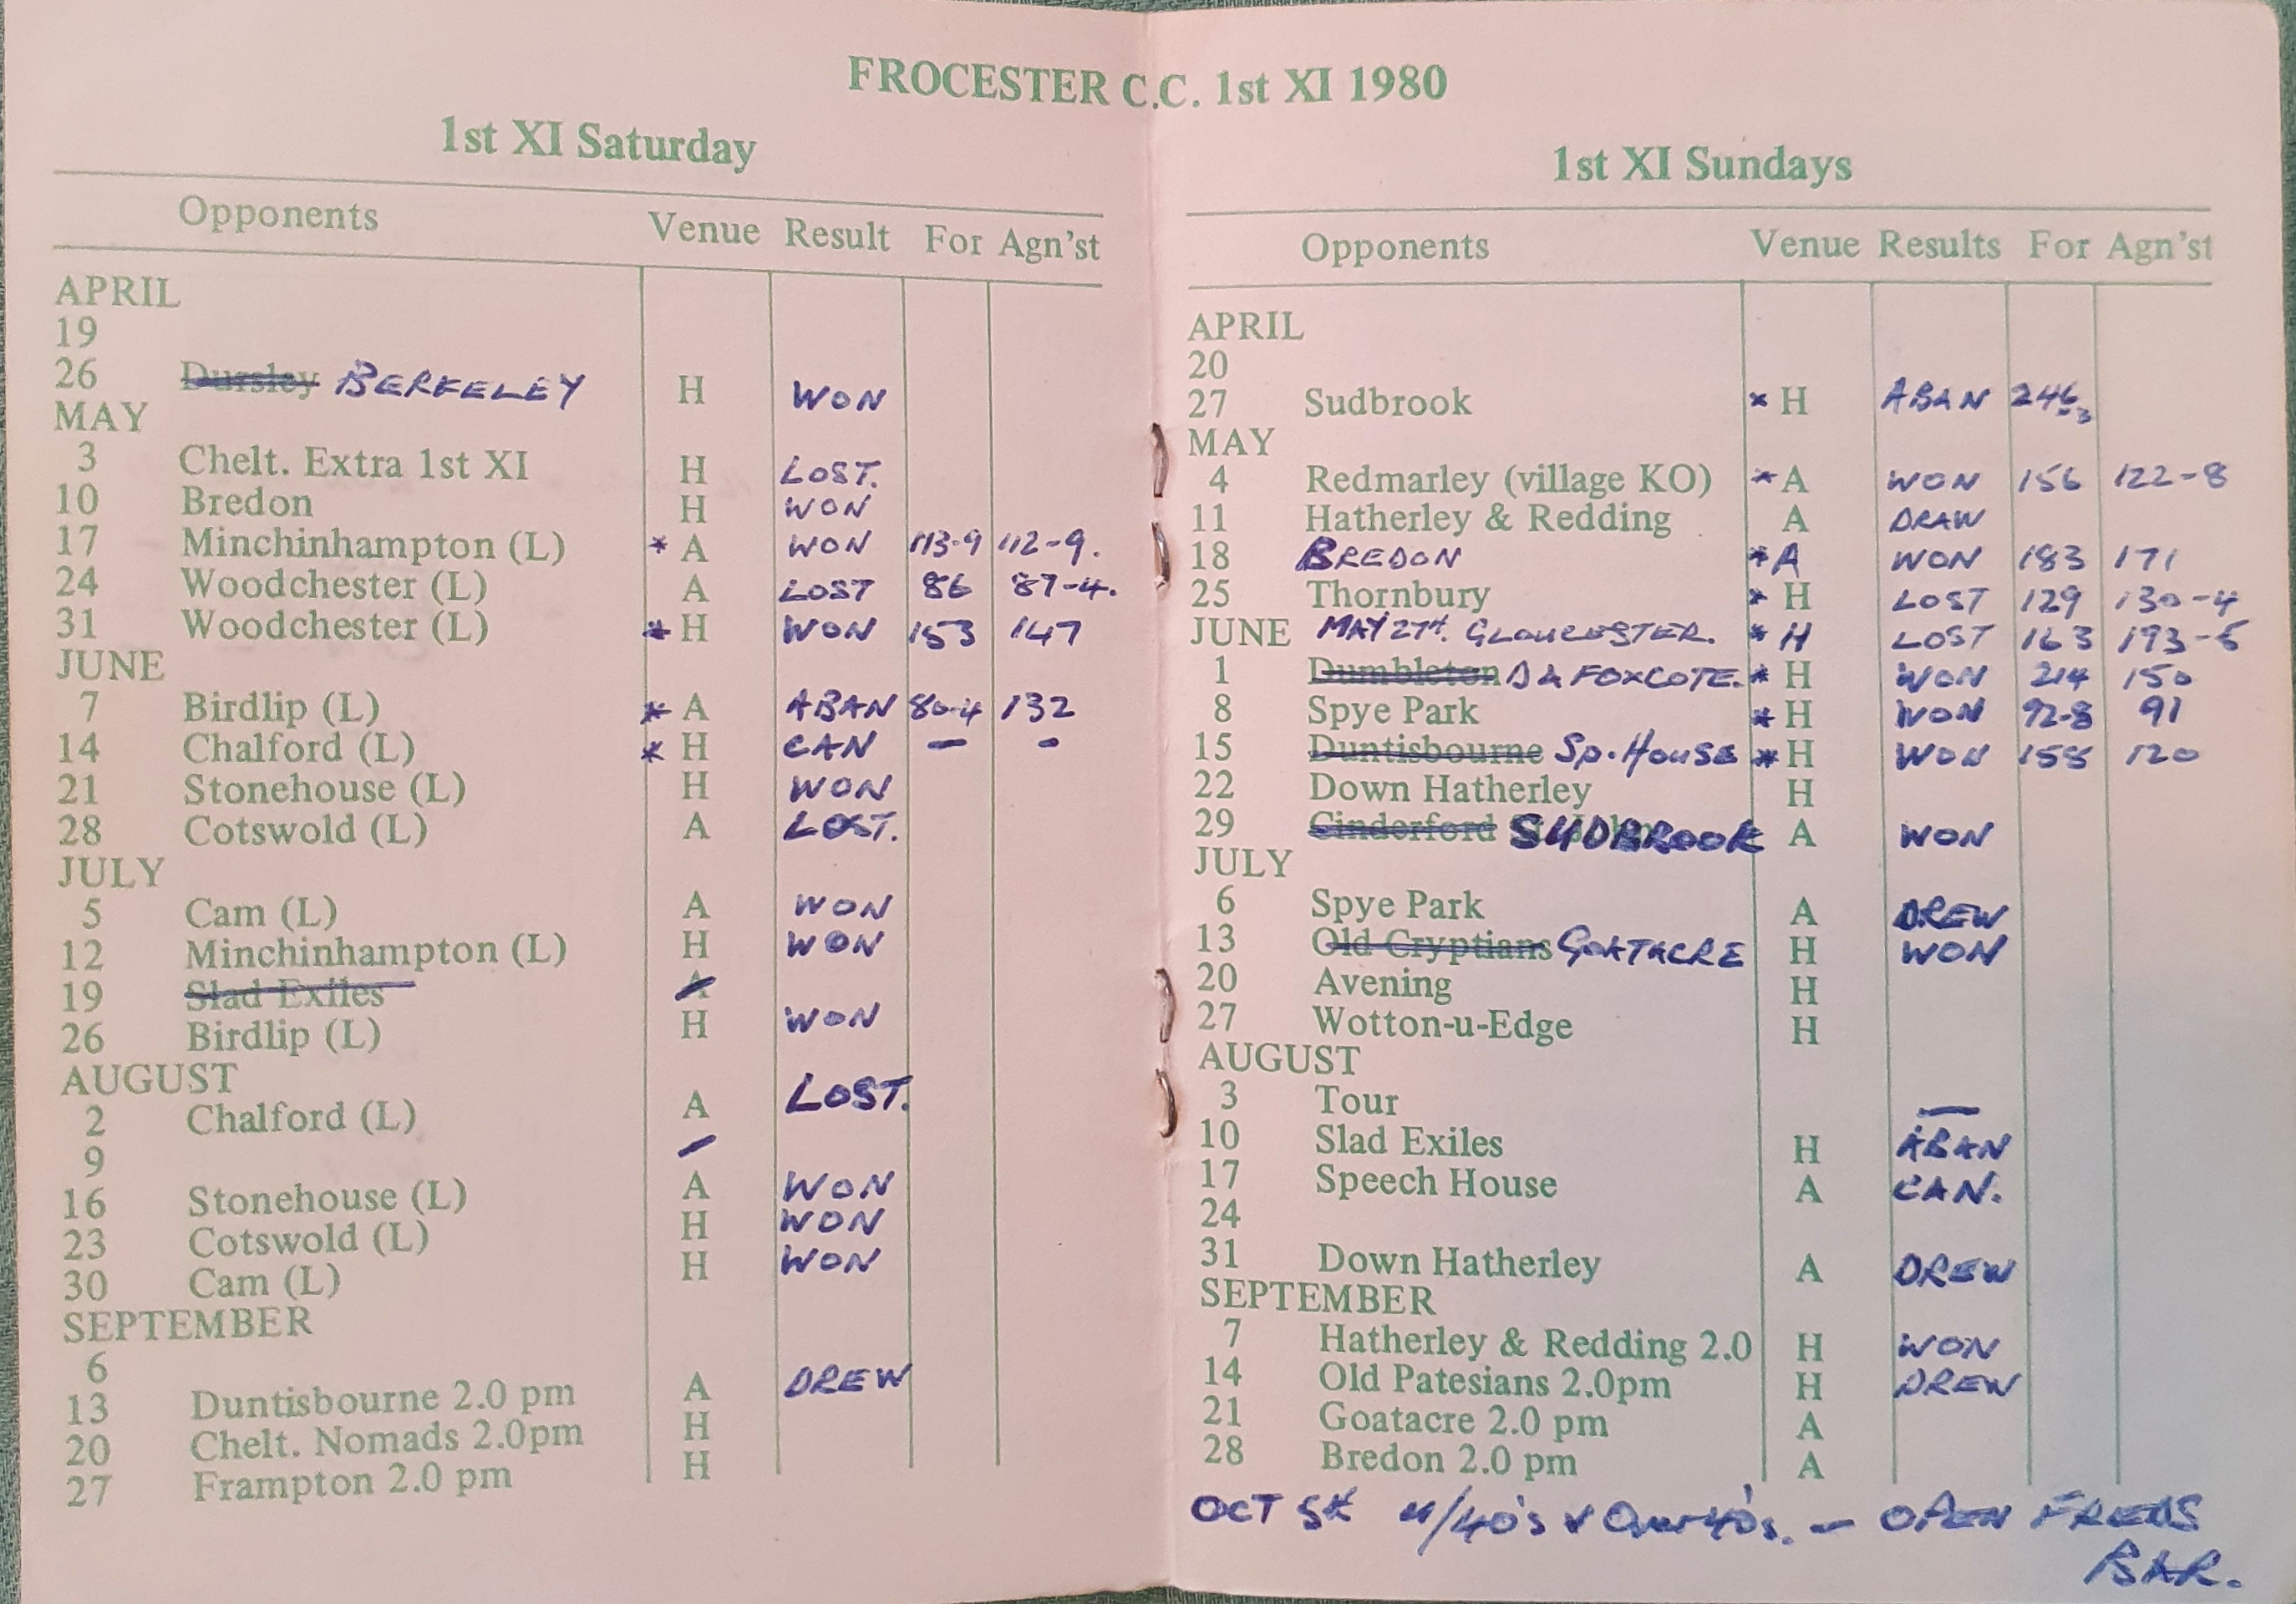 FROCESTER C.C. 1st XI 1980
1st XI Saturday
Opponents Venue Result For Agn'st
APRIL
19
26 Dursley BERKELEY H WON
MAY
3 Chelt. Extra 1st XI H LOST.
10 Bredon H WON
17 Minchinhampton (L) * A WON 113-9 112-9.
24 Woodchester (L) A LOST 86 87-4.
31 Woodchester (L) * H WON 153 147
JUNE
7 Birdlip (L) * A ABAN 80-4 132
14 Chalford (L) * H CAN - -
21 Stonehouse (L) H WON
28 Cotswold (L) A LOST.
JULY
5 Cam (L) A WON
12 Minchinhampton (L) H WON
19 Slad Exiles A
26 Birdlip (L) H WON
AUGUST
2 Chalford (L) A LOST.
9 -
16 Stonehouse (L) A WON
23 Cotswold (L) H WON
30 Cam (L) H WON
SEPTEMBER
6
13 Duntisbourne 2.0 pm A DREW
20 Chelt. Nomads 2.0pm H
27 Frampton 2.0 pm H
1st XI Sundays
Opponents Venue Results For Agn'st
APRIL
20
27 Sudbrook * H ABAN 246-3
MAY
4 Redmarley (village KO) * A WON 156 122-8
11 Hatherley & Redding A DRAW
18 BREDON * A WON 183 171
25 Thornbury * H LOST 129 130-4
JUNE MAY 27th. GLOUCESTER. * H LOST 163 193-
1 Dumbleton D & FOXCOTE. * H WON 214 150
8 Spye Park * H WON 92-8 91
15 Duntisbourne Sp. HOUSE * H WON 120
22 Down Hatherley H
29 Cinderford SUDBROOK A WON
JULY
6 Spye Park A DREW
13 Old Cryptians GOATACRE H WON
20 Avening H
27 Wotton-u-Edge H
AUGUST
3 Tour —
10 Slad Exiles H ABAN
17 Speech House A CAN.
24
31 Down Hatherley A DREW
SEPTEMBER
7 Hatherley & Redding 2.0 H WON
14 Old Patesians 2.0pm H DREW
21 Goatacre 2.0 pm A
28 Bredon 2.0 pm A
OCT 5th u/40's v Over 40's. - OPEN FREDS
BAR.